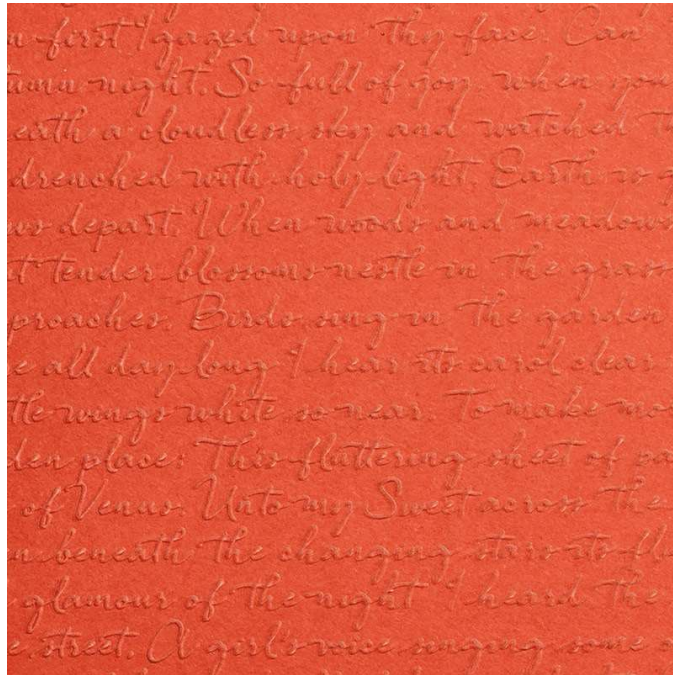 n first I gazed upon Thy face. Can
tumn night. So full of joy, when you
eath a cloudless sky and watched T
drenched with holy light, Earth is g
ws depart. When woods and meadows
t tender blossoms nestle in the grass
proaches. Birds sing in the garden
e all day long I hear its carol clear
tle wings white, so near. To make mo
den place: This fluttering sheet of pa
of Venus. Unto my Sweet across the
n beneath the changing stars its fl
glamour of the night I heard the
e street. A girl's voice singing some o